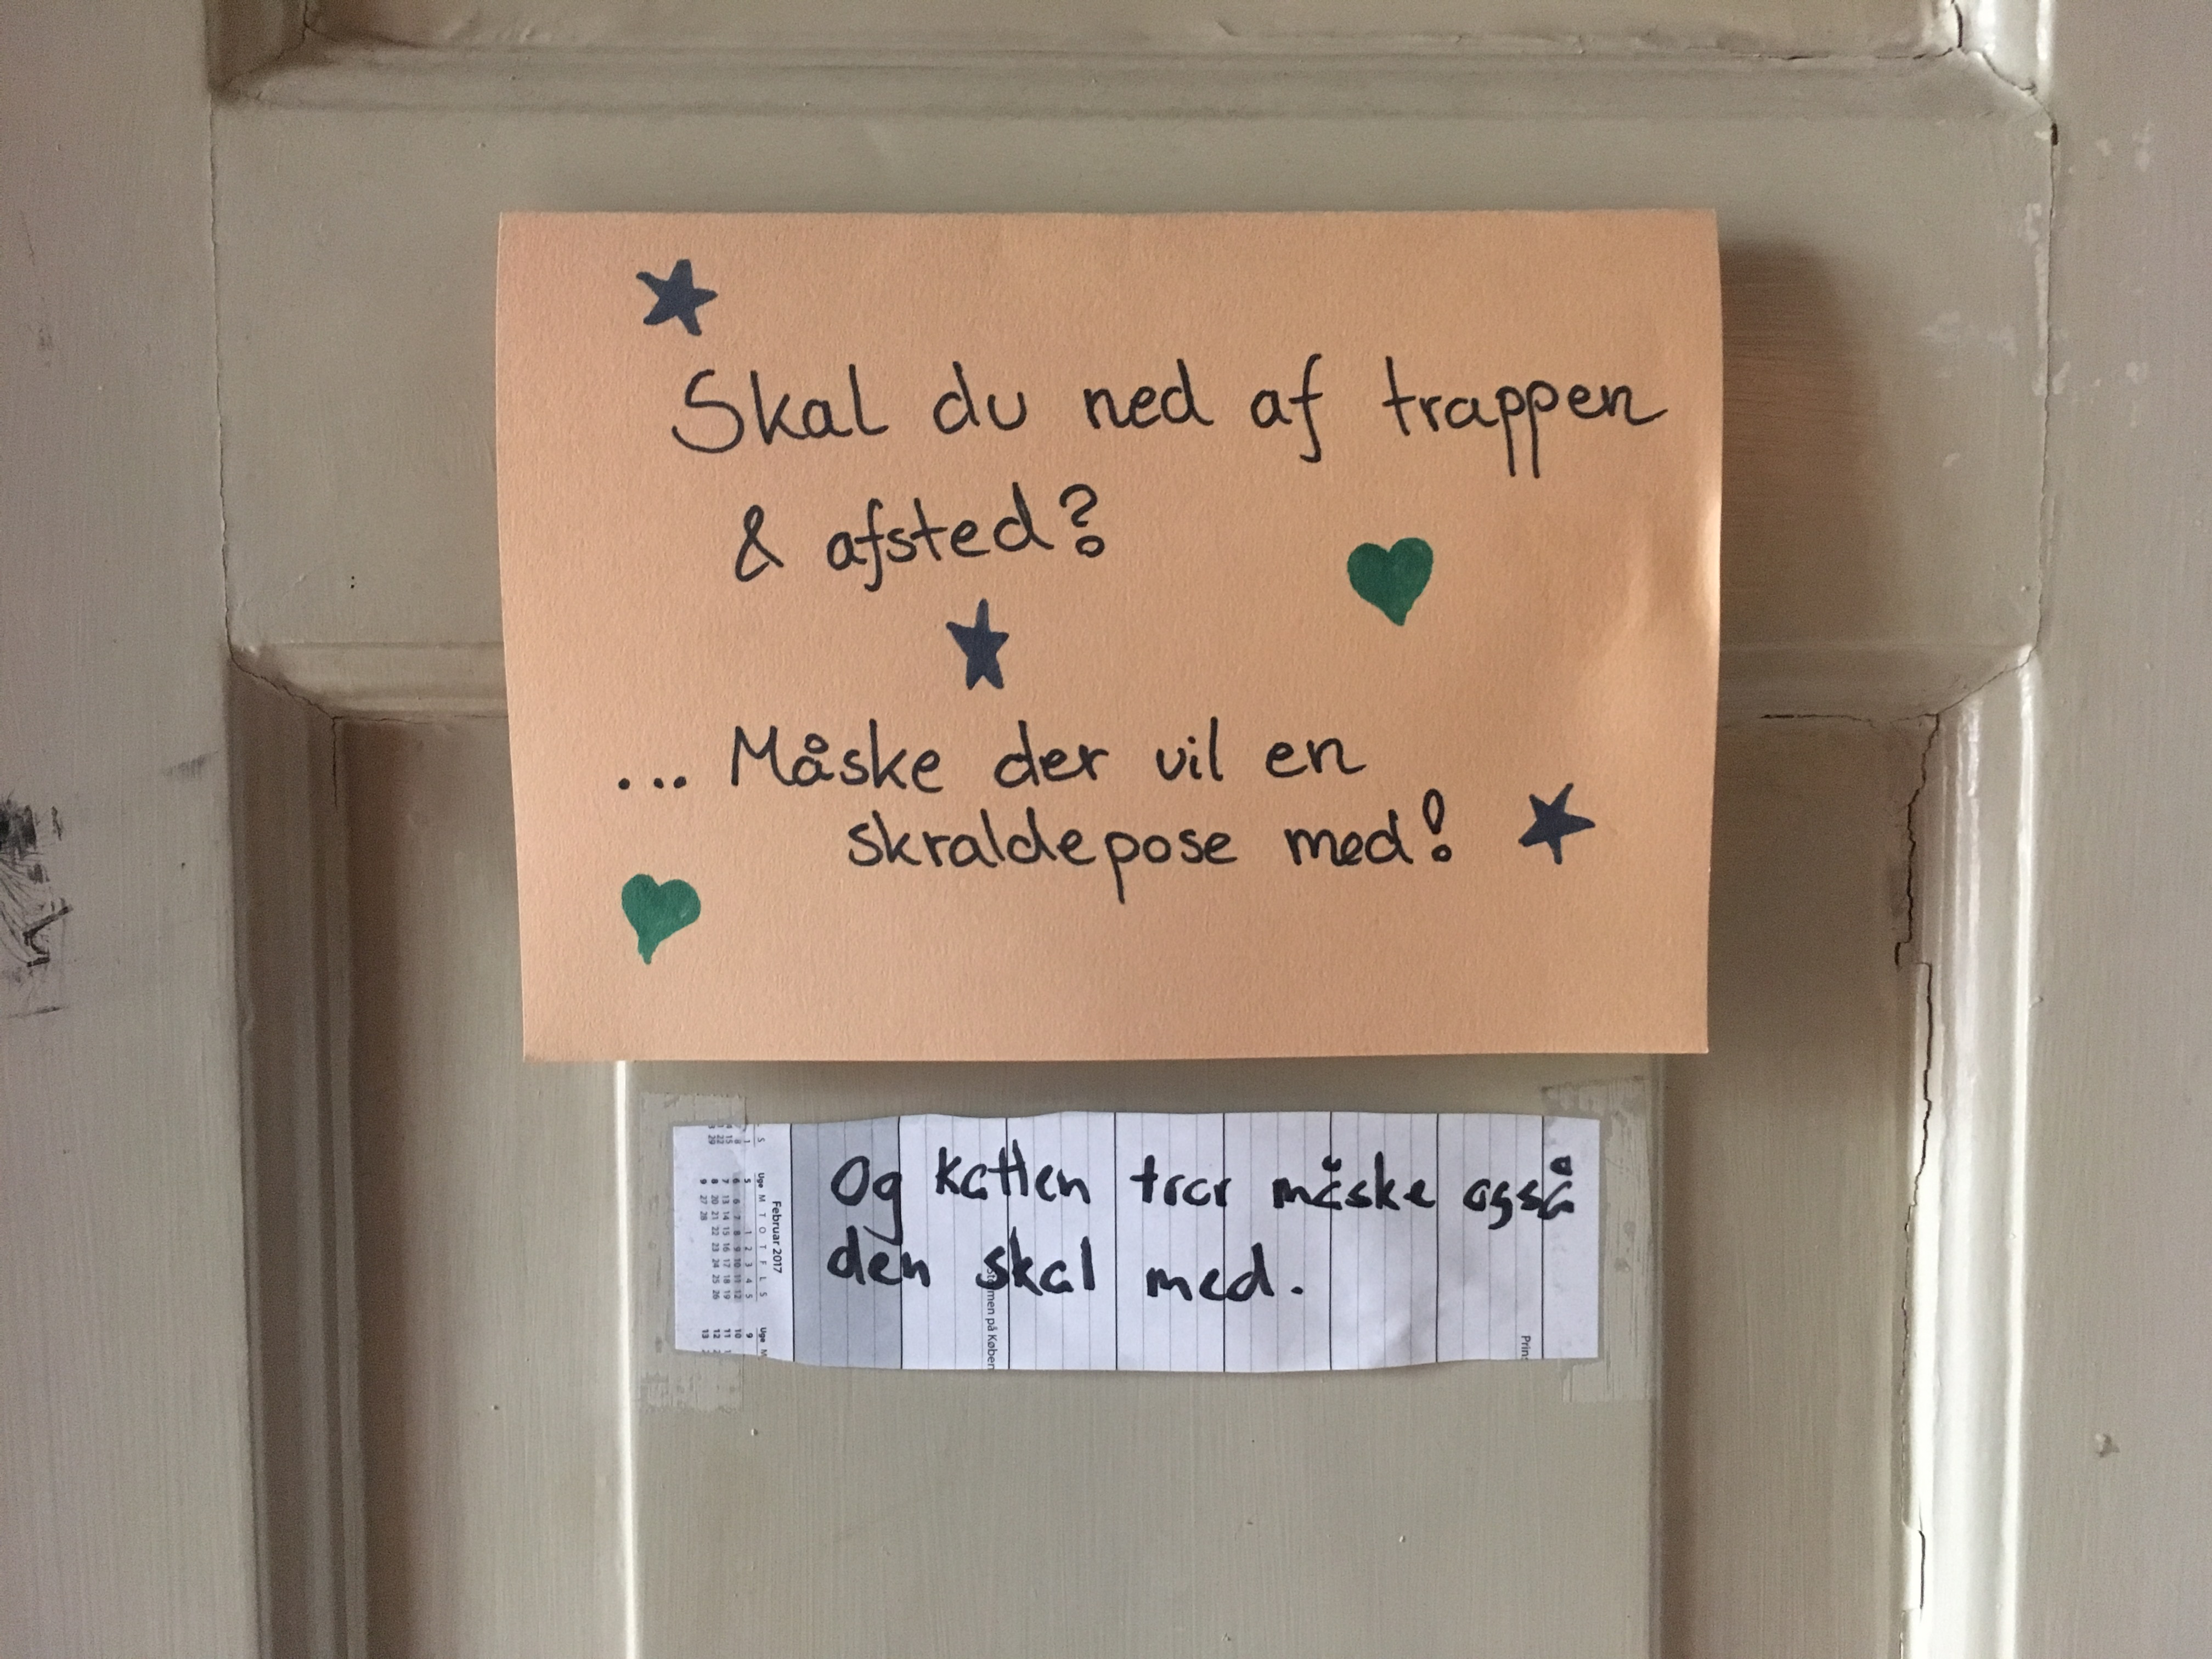 Skal du ned af trappen
& afsted?
... Måske der vil en
skraldepose med!
Og katten tror måske også
den skal med.
Februar 2017
Uge M T O T F L S
5 1 2 3 4 5
6 6 7 8 9 10 11 12
7 13 14 15 16 17 18 19
8 20 21 22 23 24 25 26
9 27 28
men på Køben
Prin